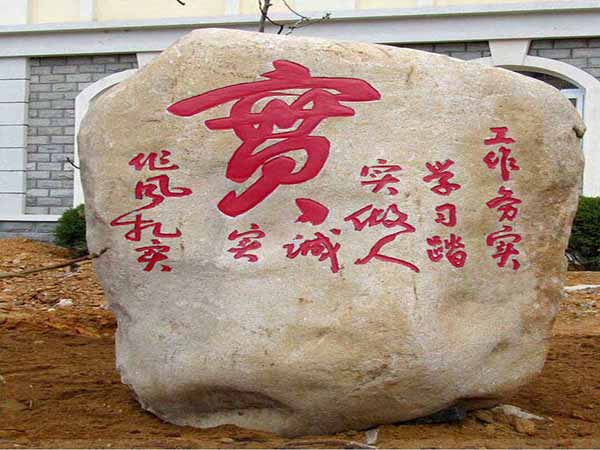 實
工作务实
学习踏
实做人
诚
实
作风扎实